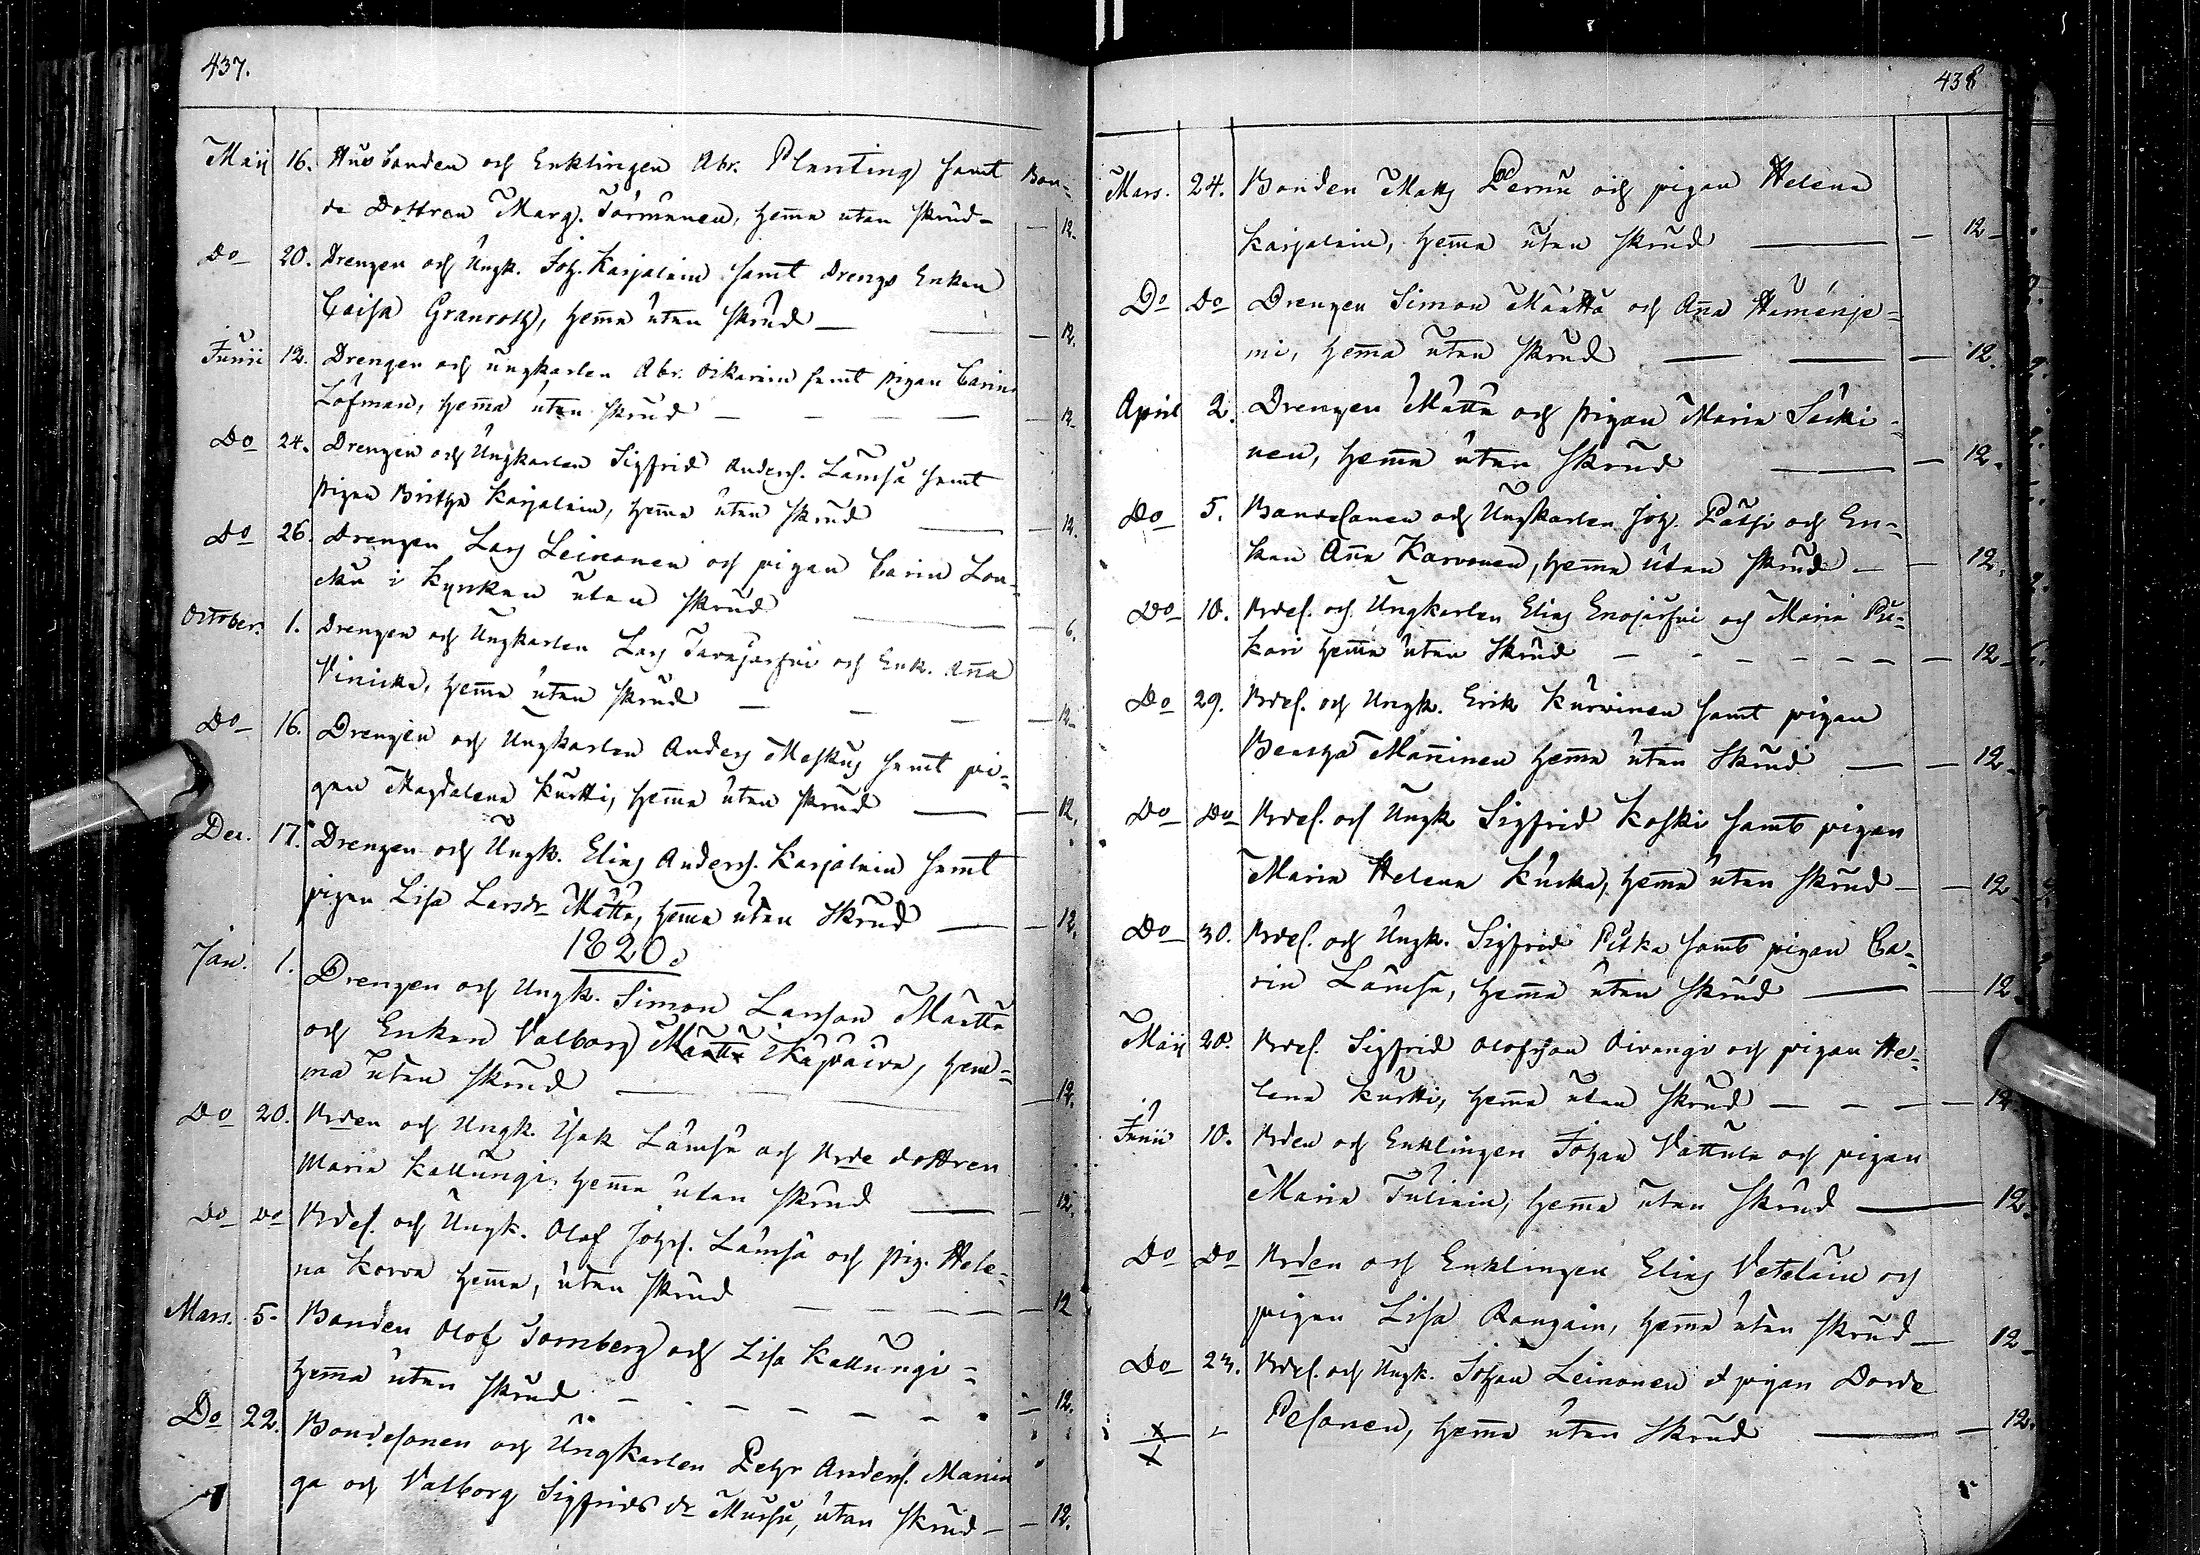 437.
Maii 16. Husbonden och Enklingen Abr. Planting samt Bon-
de Dottren Marg. Törmänen, hema utan skrud — 12.
Do 20. Drengen och Ungk. Joh. Karjalain samt Drengs Enkan
Caisa Granroth, hema utan skrud — 12.
Junii 12. Drengen och ungkarlen Abr. Oikarin samt pigan Carin
Löfman, hema utan skrud — 12.
Do 24. Drengen och Ungkarlen Sigfrid Anders. Lämsä samt
pigan Birtha Karjalain, hema utan skrud — 12.
Do 26. Drengen Lars Leinonen och pigan Carin Lou-
i Kyrkan utan skrud — 6.
October. 1. Drengen och Ungkarlen Lars Tavajärfvi och Enk. Anna
Vinikka, hema utan skrud — 12.
Do 16. Drengen och Ungkarlen Anders Meskus samt pi-
gan Magdalena Kurtti, hema utan skrud — 12.
Dec. 17. Drengen och Ungk. Elias Anderss. Karjalain samt
pigan Lisa Larsdr Määtta, hema utan skrud — 12.
1820.
Jan. 1. Drengen och Ungk. Simon Larsson Määtta
och Enkan Valborg Määtta Ikäpäivä, hem-
ma utan skrud — 12.
Do 20. Bden och Ungk. Isak Lämsä och Bde dottren
Maria Kallungi, hema utan skrud — 12.
Do Do Bdes. och Ungk. Olof Johs. Lämsä och pig. Hele-
na Korva hema, utan skrud — 12
Mars. 5. Bonden Olof Tornberg och Lisa Kallungi
hema utan skrud — 12.
Do 22. Bondesonen och Ungkarlen Petr Anders. Manin
ga och Valborg Sigfrids dr Mursu, utan skrud — 12.
438
Mars. 24. Bonden Matts Pernu och pigan Helena
Karjalain, hema utan skrud — 12
Do Do Drengen Simon Määtta och Anna Haménje-
mi, hema utan skrud — 12.
April 2. Drengen Mätta och pigan Maria Säcki-
nen, hema utan skrud — 12.
Do 5. Bondesonen och Ungkarlen Joh. Pätsi och En-
kan Anna Karvonen, hema utan skrud — 12.
Do 10. Bdes. och Ungkarlen Elias Enojärfvi och Maria Pu-
kari hema utan skrud — 12
Do 29. Bdes. och Ungk. Erik Kurvinen samt pigan
Beatha Maninen hema utan skrud — 12.
Do Do Bdes. och Ungk Sigfrid Koski samt pigan
Maria Helena Kuska, hema utan skrud — 12.
Do 30. Bdes. och Ungk. Sigfrid Pitka samt pigan Ca-
rin Lämsä, hema utan skrud — 12.
Maij 20. Bdes. Sigfrid Olofsson Oivangi och pigan He-
lena Kurtti, hema utan skrud — 12.
Junii 10. Bden och Enklingen Johan Vattula och pigan
Maria Tuliain, hema utan skrud — 12.
Do Do Bden och Enklingen Elias Vetelain och
pigan Lisa Rongain, hema utan skrud — 12
Do 23. Bdes. och Ungk. Johan Leinonen et pigan Dorde
Pesonen, hema utan skrud — 12.